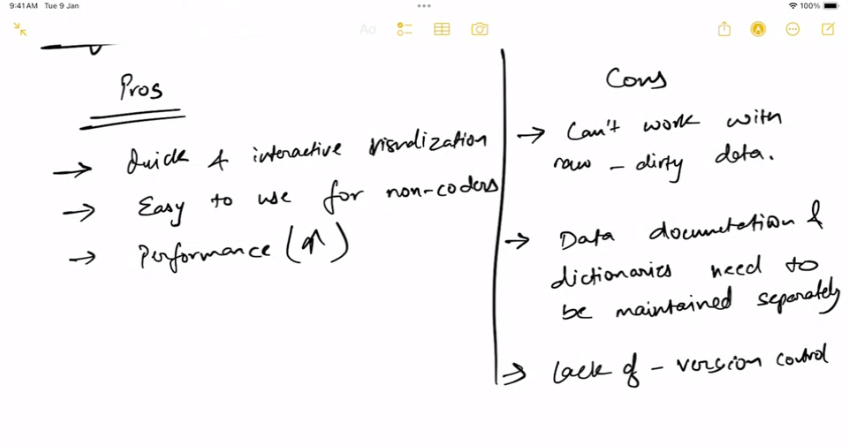 9:41 AM Tue 9 Jan
100%
Aa
Pros
→ Quick & interactive visualization
→ Easy to use for non-coders
→ Performance (↑)
Cons
→ Can't work with
raw - dirty data.
→ Data documetation &
dictionaries need to
be maintained separately
→ Lack of - version control